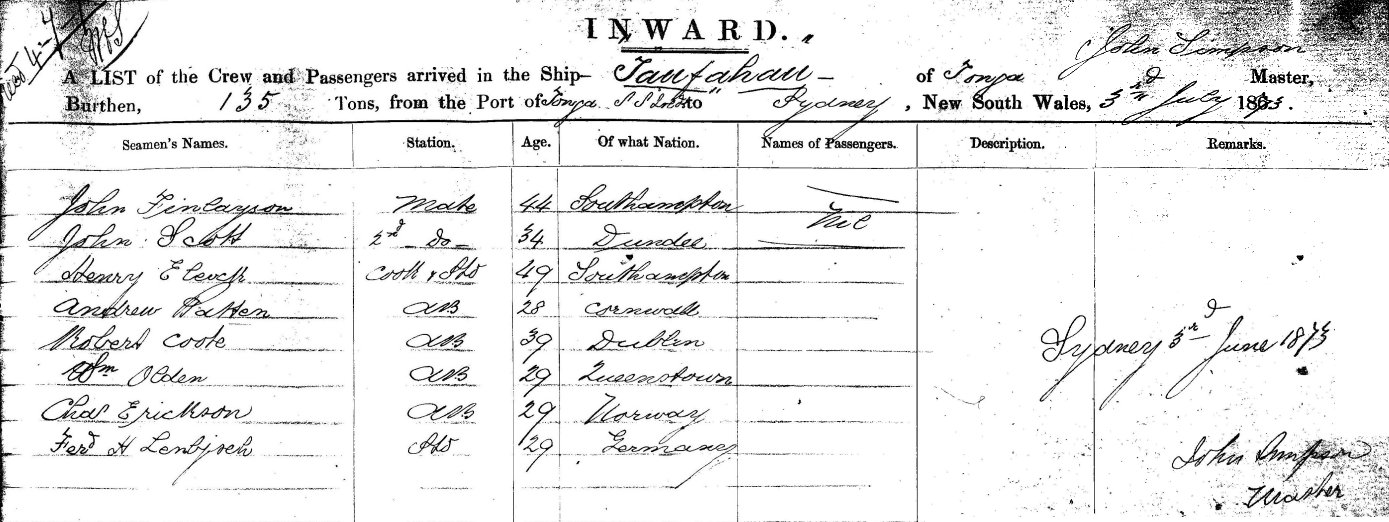 INWARD.
John Simpson
A LIST of the Crew and Passengers arrived in the Ship Taufahau of Tonga Master,
Burthen, 135 Tons, from the Port of Tonga to Sydney, New South Wales, 3rd July 1873.
Seamen's Names. Station. Age. Of what Nation. Names of Passengers. Description. Remarks.
John Finlayson Mate 44 Southampton
Nil
John Scott 2nd do 34 Dundee
Henry Cook & Std 49 Southampton
Andrew Patten AB 28 Cornwall
Robert Coote AB 39 Dublin
Sydney 3rd June 1873
Wm Olden AB 29 Queenstown
Chas Erickson AB 29 Norway
Ferd H Std 29 Germany
John Simpson
Master